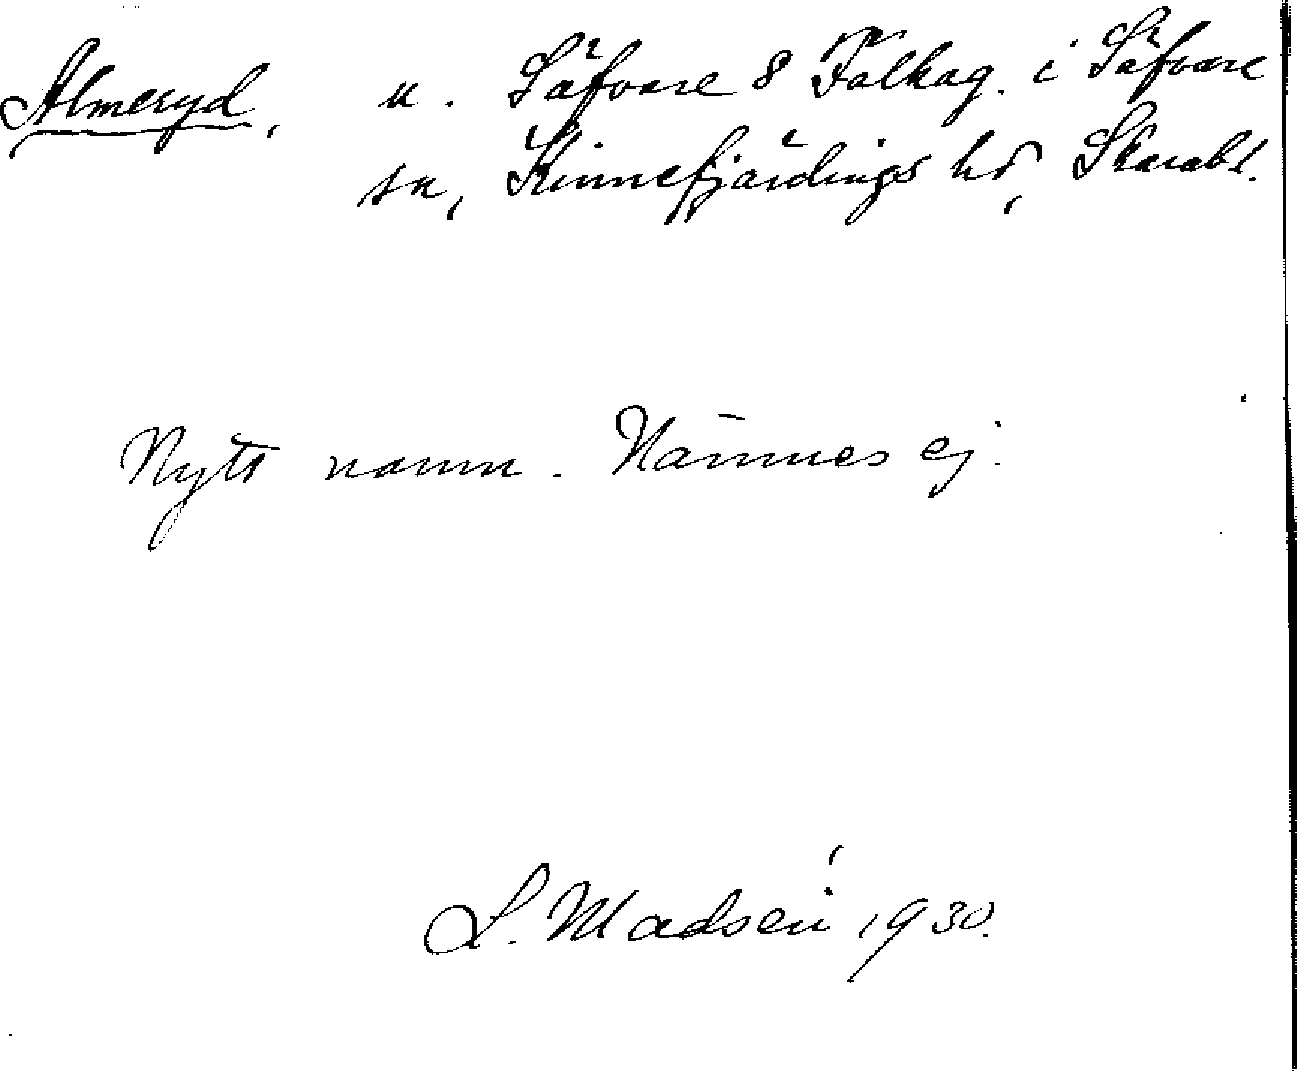 Almeryd, u. Säfvare 8 Falkag. i Säfvare
sn, Kinnefjärdings hd, Skarabl.
Nytt namn. Nämnes ej.
L. Madsén 1930.